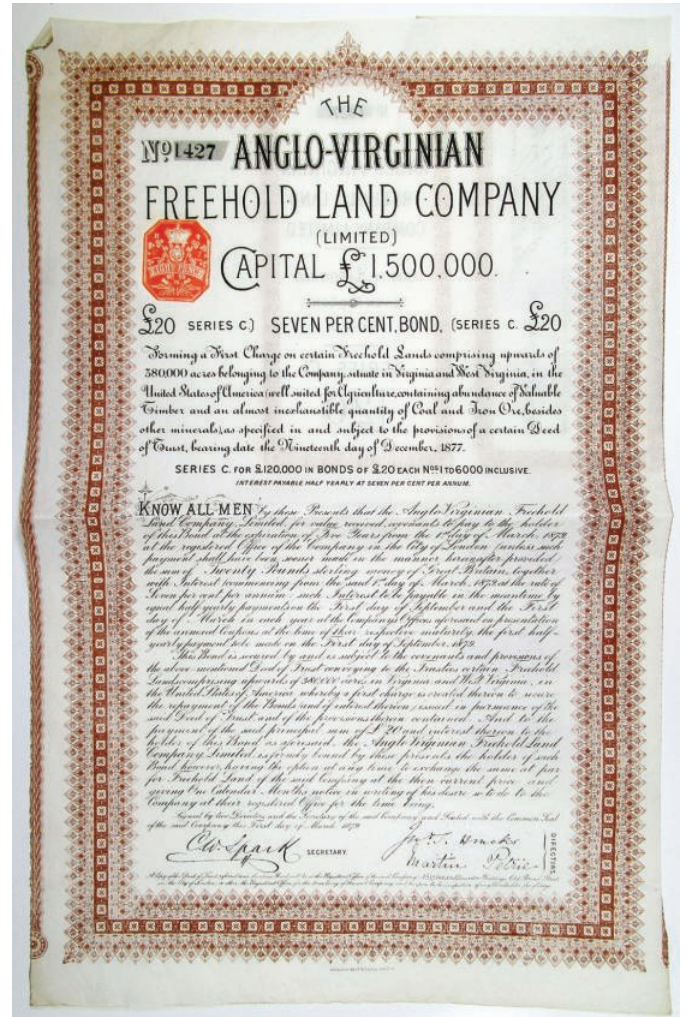 THE
Nº 1427 ANGLO-VIRGINIAN
FREEHOLD LAND COMPANY
(LIMITED)
CAPITAL £1,500,000.
£20 SERIES C.) SEVEN PER CENT, BOND, (SERIES C. £20
Forming a First Charge on certain Freehold Lands comprising upwards of
380,000 acres belonging to the Company, situate in Virginia and West Virginia, in the
United States of America (well suited for Agriculture, containing abundance of Valuable
Timber and an almost inexhaustible quantity of Coal and Iron Ore, besides
other minerals), as specified in and subject to the provisions of a certain Deed
of Trust, bearing date the Nineteenth day of December, 1877.
SERIES C. FOR £120,000 IN BONDS OF £20 EACH Nos 1 TO 6000 INCLUSIVE.
INTEREST PAYABLE HALF YEARLY AT SEVEN PER CENT PER ANNUM.
KNOW ALL MEN by these Presents that the Anglo Virginian Freehold
Land Company, Limited, for value received, covenants to pay to the holder
of this Bond at the expiration of Five Years from the 1st day of March, 1879
at the registered Office of the Company in the City of London (unless such
payment shall have been sooner made in the manner hereinafter provided)
the sum of Twenty Pounds sterling money of Great Britain, together
with Interest commencing from the said 1st day of March, 1879 at the rate of
Seven per cent per annum, such Interest to be payable in the meantime by
equal half yearly payments on the First day of September and the First
day of March in each year at the Company's Offices aforesaid on presentation
of the annexed Coupons at the time of their respective maturity, the first half-
yearly payment to be made on the First day of September, 1879.
This Bond is secured by and is subject to the covenants and provisions of
the above mentioned Deed of Trust conveying to the Trustees certain Freehold
Lands comprising upwards of 380,000 acres in Virginia and West Virginia, in
the United States of America whereby a first charge is created thereon to secure
the repayment of the Bonds and of interest thereon, issued in pursuance of the
said Deed of Trust and of the provisions therein contained. And to the
payment of the said principal sum of £20 and interest thereon to the
holder of this Bond as aforesaid, the Anglo Virginian Freehold Land
Company Limited is firmly bound by these presents the holder of such
Bond however, having the option at any time to exchange the same at par
for Freehold Land of the said Company at the then current price and
giving One Calendar Months notice in writing of his desire so to do to the
Company at their registered Office for the time being.
Signed by two Directors and the Secretary of the said Company and Sealed with the Common Seal
of the said Company this First day of March 1879
SECRETARY.
Martin Petrie
DIRECTORS